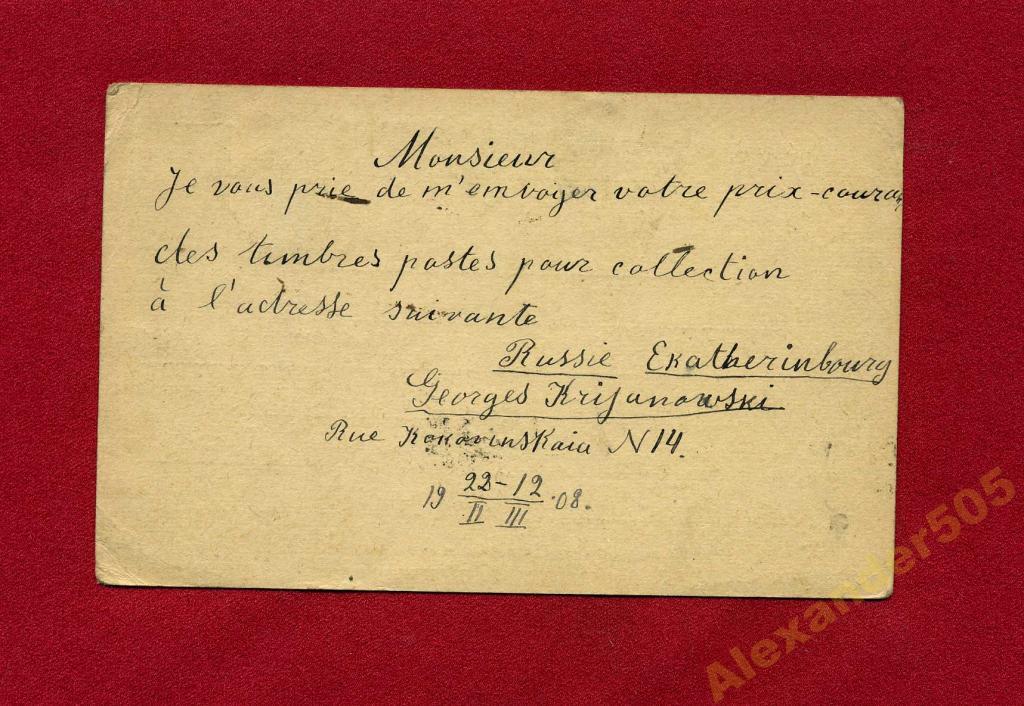 Monsieur
Je vous prie de m'envoyer votre prix-couran
des timbres postes pour collection
à l'adresse suivante
Russie Ekatherinbourg
Georges Krijanowski
Rue N 14.
19 22-12 08.
II III
Alexander505